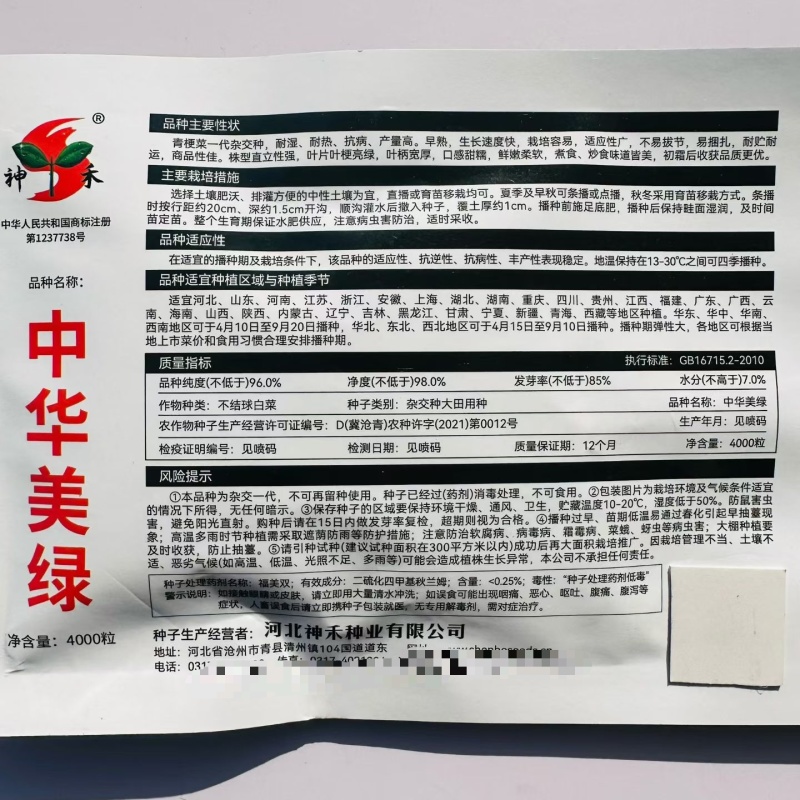 ®
神禾
中华人民共和国商标注册
第1237738号
品种名称：
中华美绿
净含量：4000粒
品种主要性状
青梗菜一代杂交种，耐湿、耐热、抗病、产量高。早熟，生长速度快，栽培容易，适应性广，不易拔节，易捆扎，耐贮耐
运，商品性佳。株型直立性强，叶片叶梗亮绿，叶柄宽厚，口感甜糯，鲜嫩柔软，煮食、炒食味道皆美，初霜后收获品质更优。
主要栽培措施
选择土壤肥沃、排灌方便的中性土壤为宜，直播或育苗移栽均可。夏季及早秋可条播或点播，秋冬采用育苗移栽方式。条播
时按行距约20cm、深约1.5cm开沟，顺沟灌水后撒入种子，覆土厚约1cm。播种前施足底肥，播种后保持畦面湿润，及时间
苗定苗。整个生育期保证水肥供应，注意病虫害防治，适时采收。
品种适应性
在适宜的播种期及栽培条件下，该品种的适应性、抗逆性、抗病性、丰产性表现稳定。地温保持在13-30℃之间可四季播种。
品种适宜种植区域与种植季节
适宜河北、山东、河南、江苏、浙江、安徽、上海、湖北、湖南、重庆、四川、贵州、江西、福建、广东、广西、云
南、海南、山西、陕西、内蒙古、辽宁、吉林、黑龙江、甘肃、宁夏、新疆、青海、西藏等地区种植。华东、华中、华南、
西南地区可于4月10日至9月20日播种，华北、东北、西北地区可于4月15日至9月10日播种。播种期弹性大，各地区可根据当
地上市菜价和食用习惯合理安排播种期。
质量指标 执行标准：GB16715.2-2010
品种纯度(不低于)96.0% 净度(不低于)98.0% 发芽率(不低于)85% 水分(不高于)7.0%
作物种类：不结球白菜 种子类别：杂交种大田用种 品种名称：中华美绿
农作物种子生产经营许可证编号：D(冀沧青)农种许字(2021)第0012号 生产年月：见喷码
检疫证明编号：见喷码 检测日期：见喷码 质量保证期：12个月 净含量：4000粒
风险提示
①本品种为杂交一代，不可再留种使用。种子已经过(药剂)消毒处理，不可食用。②包装图片为栽培环境及气候条件适宜
的情况下所得，无任何暗示。③保存种子的区域要保持环境干燥、通风、卫生，贮藏温度10-20℃，湿度低于50%。防鼠害虫
害，避免阳光直射。购种后请在15日内做发芽率复检，超期则视为合格。④播种过早、苗期低温易通过春化引起早抽薹现
象；高温多雨时节种植需采取遮荫防雨等防护措施；注意防治软腐病、病毒病、霜霉病、菜蛾、蚜虫等病虫害；大棚种植要
及时收获，防止抽薹。⑤请引种试种(建议试种面积在300平方米以内)成功后再大面积栽培推广。因栽培管理不当、土壤不
适、恶劣气候(如高温、低温、光照不足、多雨等)可能会造成植株生长异常，本公司不承担任何责任。
种子处理药剂名称：福美双；有效成分：二硫化四甲基秋兰姆；含量：<0.25%；毒性："种子处理药剂低毒"
警示说明：如接触眼睛或皮肤，请立即用大量清水冲洗；如误食可能出现咽痛、恶心、呕吐、腹痛、腹泻等
症状，人畜误食后请立即携种子包装就医，无专用解毒剂，需对症治疗。
种子生产经营者：河北神禾种业有限公司
地址：河北省沧州市青县清州镇104国道道东
电话：031